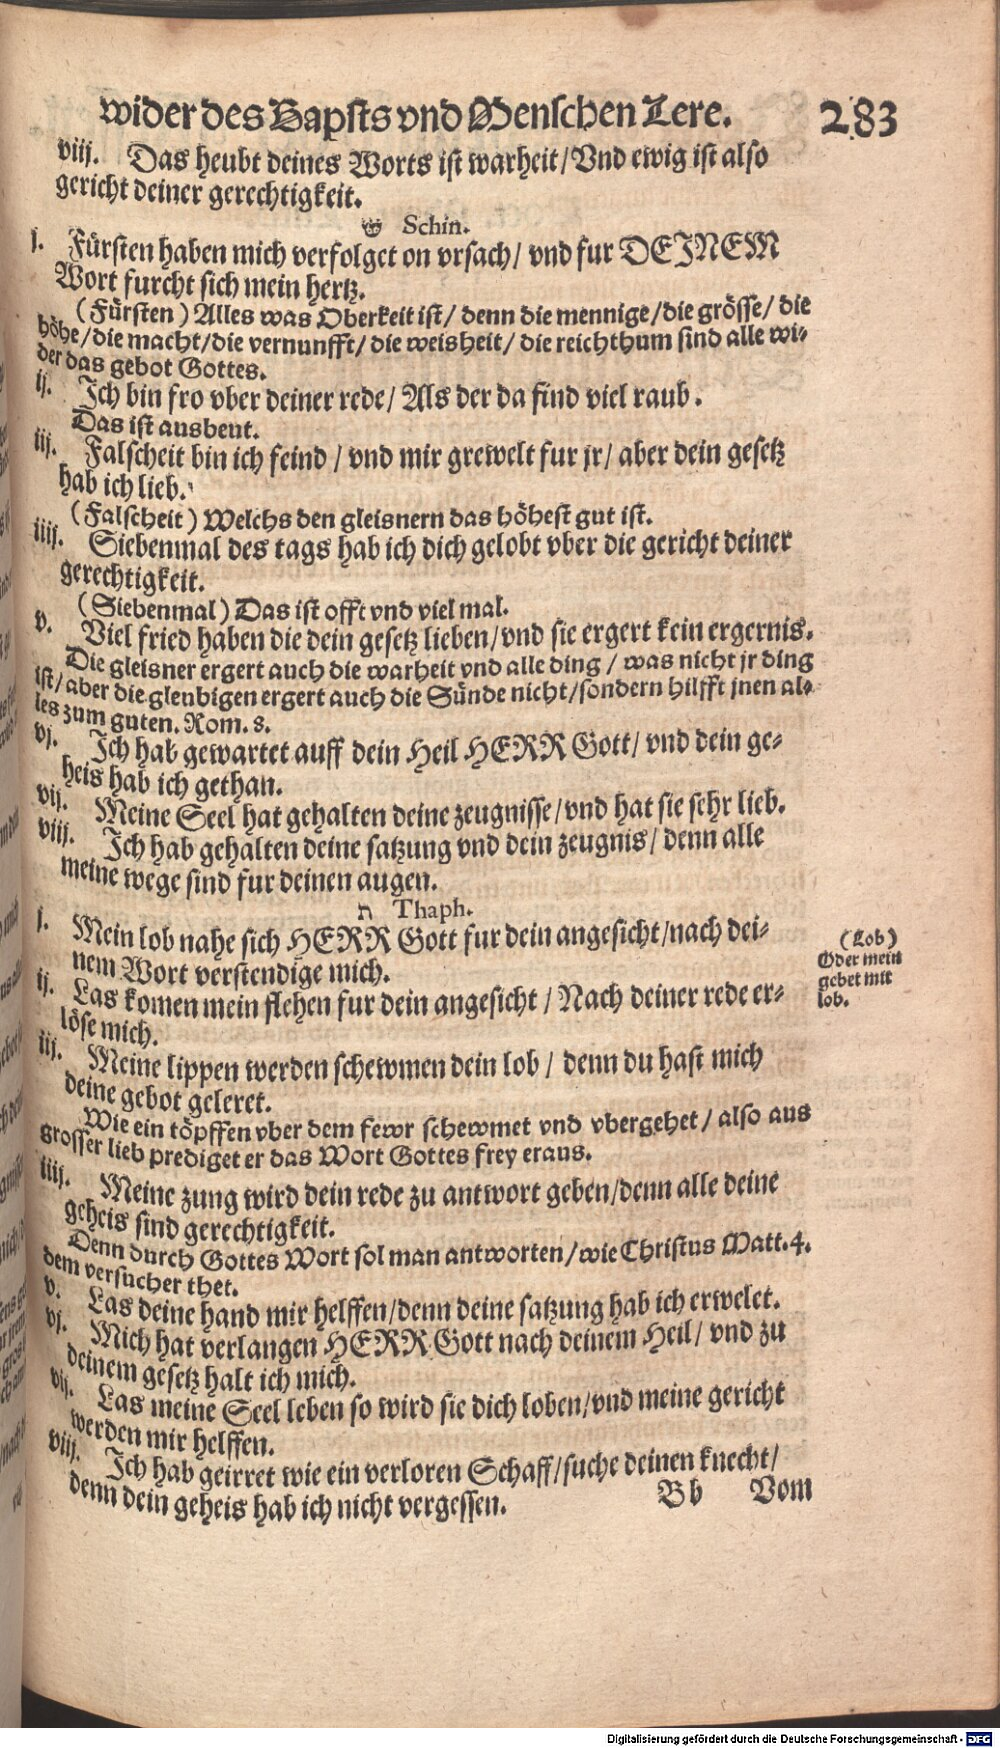 wider des Bapsts vnd Menschen Lere. 283
viij. Das heubt deines Worts ist warheit/Vnd ewig ist also
gericht deiner gerechtigkeit.
ש Schin.
j. Fürsten haben mich verfolget on vrsach/ vnd fur DEINEM
Wort furcht sich mein hertz.
(Fürsten) Alles was Oberkeit ist/ denn die mennige/die grösse/ die
höhe/die macht/die vernunfft/ die weisheit/ die reichthum sind alle wi-
der das gebot Gottes.
ij. Ich bin fro vber deiner rede/ Als der da find viel raub.
Das ist ausbeut.
iij. Falscheit bin ich feind / vnd mir grewelt fur jr/ aber dein gesetz
hab ich lieb.
(Falscheit) Welchs den gleisnern das höhest gut ist.
iiij. Siebenmal des tags hab ich dich gelobt vber die gericht deiner
gerechtigkeit.
(Siebenmal) Das ist offt vnd viel mal.
v. Viel fried haben die dein gesetz lieben/vnd sie ergert kein ergernis.
Die gleisner ergert auch die warheit vnd alle ding / was nicht jr ding
ist/aber die gleubigen ergert auch die Sünde nicht/sondern hilfft jnen al-
les zum guten. Rom. 8.
vj. Ich hab gewartet auff dein Heil HERR Gott/ vnd dein ge-
heis hab ich gethan.
vij. Meine Seel hat gehalten deine zeugnisse/vnd hat sie sehr lieb.
viij. Ich hab gehalten deine satzung vnd dein zeugnis/ denn alle
meine wege sind fur deinen augen.
ת Thaph.
j. Mein lob nahe sich HERR Gott fur dein angesicht/nach dei-
nem Wort verstendige mich.
(Lob)
Oder mein
gebet mit
lob.
ij. Las komen mein flehen fur dein angesicht / Nach deiner rede er-
löse mich.
iij. Meine lippen werden schewmen dein lob / denn du hast mich
deine gebot geleret.
Wie ein töpffen vber dem fewr schewmet vnd vbergehet/ also aus
grosser lieb prediget er das Wort Gottes frey eraus.
iiij. Meine zung wird dein rede zu antwort geben/denn alle deine
geheis sind gerechtigkeit.
Denn durch Gottes Wort sol man antworten/wie Christus Matt. 4.
dem versucher thet.
v. Las deine hand mir helffen/denn deine satzung hab ich erwelet.
vj. Mich hat verlangen HERR Gott nach deinem Heil/ vnd zu
deinem gesetz halt ich mich.
vij. Las meine Seel leben so wird sie dich loben/vnd meine gericht
werden mir helffen.
viij. Ich hab geirret wie ein verloren Schaff/suche deinen knecht/
denn dein geheis hab ich nicht vergessen.
Bb Vom
Digitalisierung gefördert durch die Deutsche Forschungsgemeinschaft - DFG